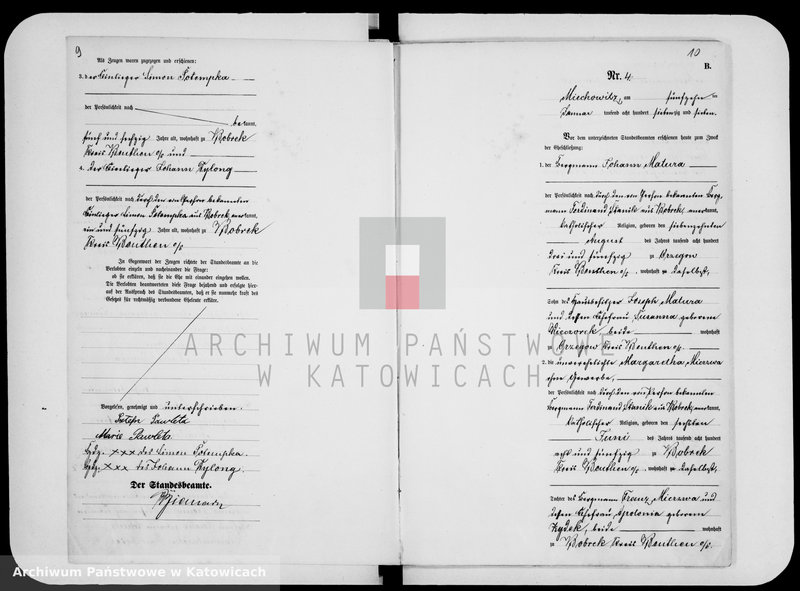 9
Als Zeugen waren zugezogen und erschienen:
3. der Einlieger Simon Potempka
der Persönlichkeit nach
be kannt,
fünf und sechzig Jahre alt, wohnhaft zu Bobrek
Kreis Beuthen o/s und
4. der Einlieger Johann Kylong
der Persönlichkeit nach durch den von Person bekannten
Einlieger Simon Potempka aus Bobrek anerkannt,
ein und fünfzig Jahre alt, wohnhaft zu Bobrek
Kreis Beuthen o/s
In Gegenwart der Zeugen richtete der Standesbeamte an die
Verlobten einzeln und nacheinander die Frage:
ob sie erklären, daß sie die Ehe mit einander eingehen wollen.
Die Verlobten beantworteten diese Frage bejahend und erfolgte hier-
auf der Ausspruch des Standesbeamten, daß er sie nunmehr kraft des
Gesetzes für rechtmäßig verbundene Eheleute erkläre.
Vorgelesen, genehmigt und unterschrieben.
Josef Pawleta
Marie Pawleta
Hdz. xxx des Simon Potempka
Hdz. xxx des Johann Kylong.
Der Standesbeamte.
10
B.
Nr. 4
Miechowitz, am fünfzehnten
Januar tausend acht hundert siebenzig und sieben.
Vor dem unterzeichneten Standesbeamten erschienen heute zum Zweck
der Eheschließung:
1. der Bergmann Johann Matura
der Persönlichkeit nach durch den von Person bekannten Berg-
mann Ferdinand Slanik aus Bobrek, anerkannt,
katholischer Religion, geboren den siebenzehnten
August des Jahres tausend acht hundert
drei und fünfzig zu Orzegow
Kreis Beuthen o/s, wohnhaft zu daselbst,
Sohn des Hausbesitzer Joseph Matura
und dessen Ehefrau Susanna geborene
Wieczorek, beide wohnhaft
zu Orzegow Kreis Beuthen o/s.
2. die unverehelichte Margaretha Mierzwa
ohne Gewerbe,
der Persönlichkeit nach durch den von Person bekannten
Bergmann Ferdinand Slanik aus Bobrek, anerkannt,
katholischer Religion, geboren den sechsten
Juni des Jahres tausend acht hundert
acht und fünfzig zu Bobrek
Kreis Beuthen o/s, wohnhaft zu daselbst,
Tochter des Bergmann Franz Mierzwa und
dessen Ehefrau Apolonia geborene
Zydek, beide wohnhaft
zu Bobrek Kreis Beuthen o/s.
ARCHIWUM PAŃSTWOWE
W KATOWICACH
Archiwum Państwowe w Katowicach